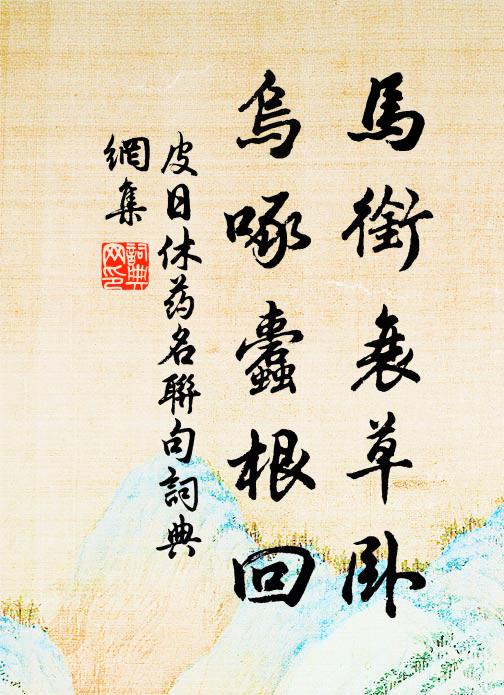 馬銜衰草卧
烏啄蠹根回
皮日休药名聯句詞典
網集
詞典网印